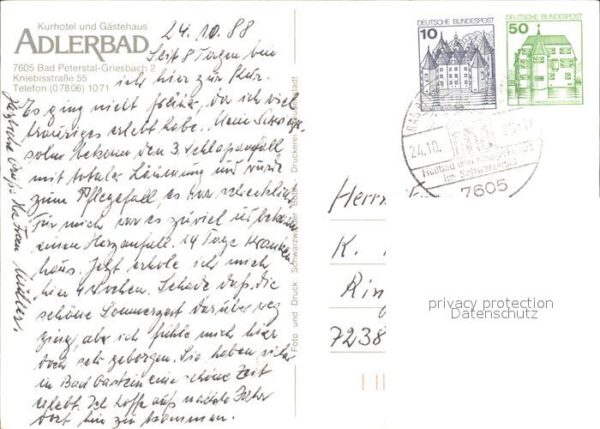 24.10.88
Kurhotel und Gästehaus
ADLERBAD
7605 Bad Peterstal-Griesbach 2
Kniebisstraße 55
Telefon (07806) 1071
Seit 8 Tagen bin
ich hier zur Kur.
Es ging nicht früher, da ich viel
trauriges erlebt habe. Mein Schwieger
sohn bekam den 3. Schlaganfall
mit totaler Lähmung und wurde
zum Pflegefall es war schrecklich
Für mich war es zuviel ich bekam
einen Herzanfall. 14 Tage Kranken
haus. Jetzt erhole ich mich
hier 4 Wochen. Schade daß die
schöne Sommerzeit darüber weg
ging, aber ich fühle mich hier
doch sehr geborgen. Sie haben
in Bad Gastein eine schöne Zeit
erlebt. Ich hoffe auf nächstes Jahr
dort hin zu kommen.
Herzliche Grüße Ihre Frau Müller
Foto und Druck Schwarzwälder Bote, Druckerei
DEUTSCHE BUNDESPOST
10
DEUTSCHE BUNDESPOST
50
24.10.
Heilbad und
im Schwarzwald
7605
Herrn
K.
Rin
7238
privacy protection
Datenschutz